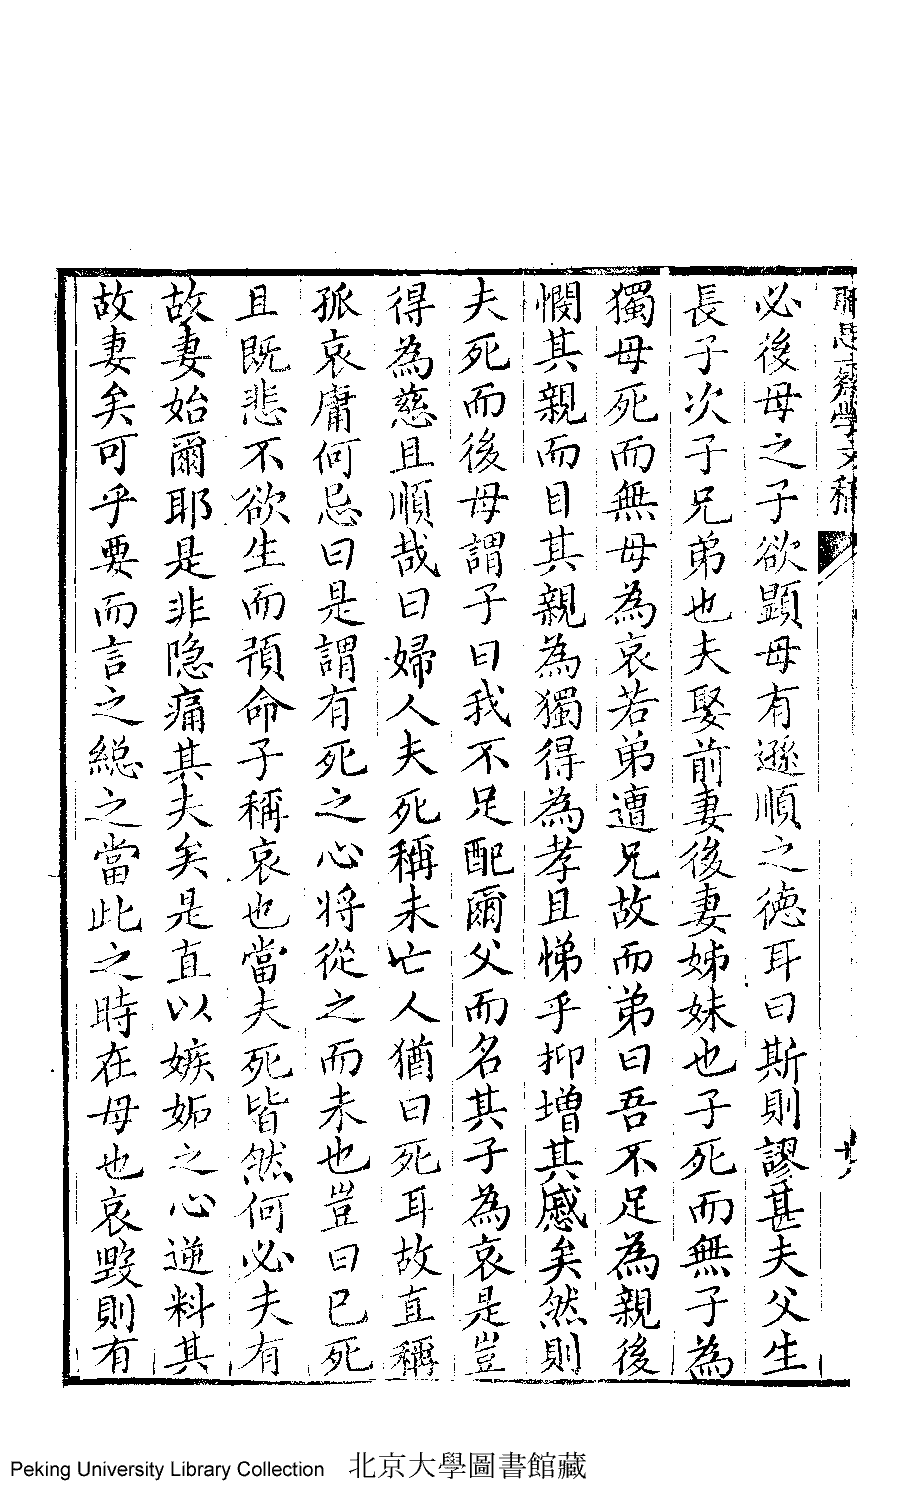 必後母之子欲顯母有遜順之德耳曰斯則謬甚夫父生
長子次子兄弟也夫娶前妻後妻姊妹也子死而無子為
獨母死而無母為哀若弟遭兄故而弟曰吾不足為親後
憫其親而目其親為獨得為孝且悌乎抑增其慼矣然則
夫死而後母謂子曰我不足配爾父而名其子為哀是豈
得為慈且順哉曰婦人夫死稱未亡人猶曰死耳故直稱
孤哀庸何忌曰是謂有死之心將從之而未也豈曰已死
且既悲不欲生而預命子稱哀也當夫死皆然何必夫有
故妻始爾耶是非隐痛其夫矣是直以嫉妬之心逆料其
故妻矣可乎要而言之総之當此之時在母也哀毀則有
Peking University Library Collection 北京大學圖書館藏